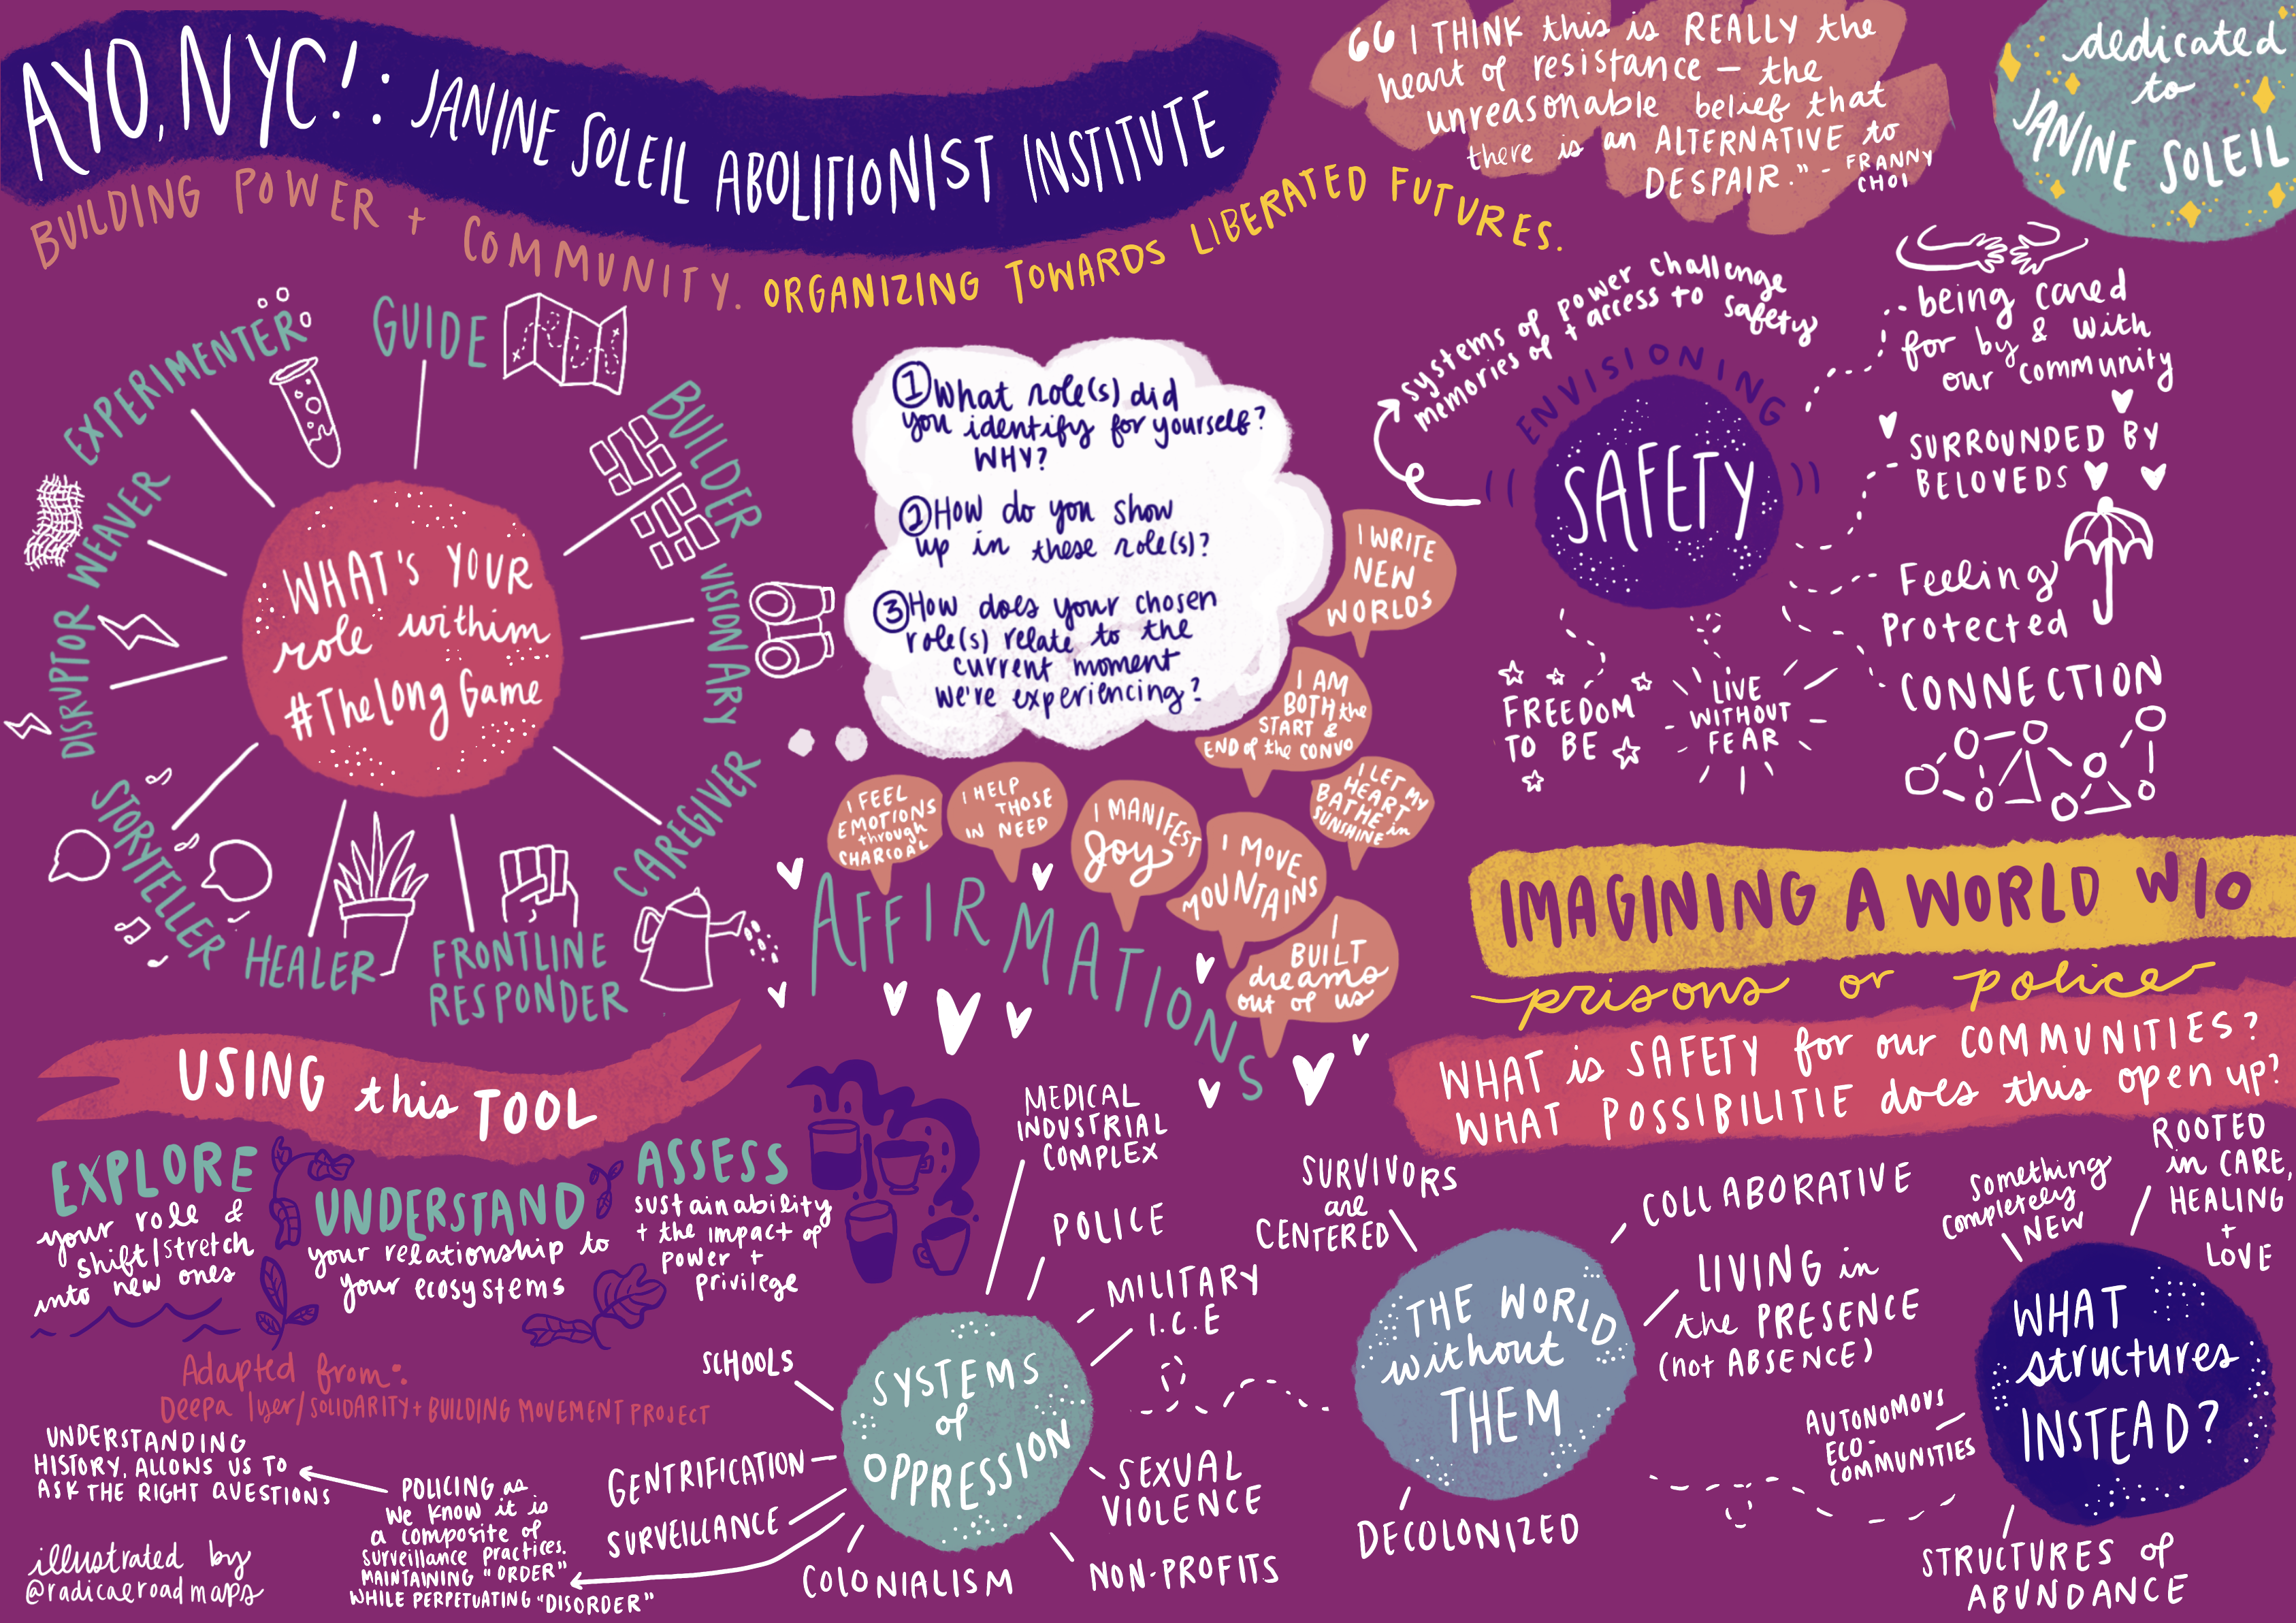 AYO, NYC!: JANINE SOLEIL ABOLITIONIST INSTITUTE
BUILDING POWER + COMMUNITY. ORGANIZING TOWARDS LIBERATED FUTURES.
“ I THINK this is REALLY the
heart of resistance – the
unreasonable belief that
there is an ALTERNATIVE to
DESPAIR.” - FRANNY
CHOI
dedicated
to
JANINE SOLEIL
WHAT'S YOUR
role within
#TheLongGame
GUIDE
BUILDER
VISIONARY
CAREGIVER
FRONTLINE
RESPONDER
HEALER
STORYTELLER
DISRUPTOR
WEAVER
EXPERIMENTER
① What role(s) did
you identify for yourself?
WHY?
② How do you show
up in these role(s)?
③ How does your chosen
role(s) relate to the
current moment
we're experiencing?
AFFIRMATIONS
I FEEL
EMOTIONS
through
CHARCOAL
I HELP
THOSE
IN NEED
I MANIFEST
Joy
I MOVE
MOUNTAINS
I
BUILT
dreams
out of us
I LET MY
HEART
BATHE in
SUNSHINE
I AM
BOTH the
START &
END of the CONVO
I WRITE
NEW
WORLDS
ENVISIONING
SAFETY
systems of power challenge
memories of + access to safety
being cared
for by & with
our community
SURROUNDED BY
BELOVEDS
Feeling
Protected
CONNECTION
LIVE
WITHOUT
FEAR
FREEDOM
TO BE
IMAGINING A WORLD W/O
prisons or police
WHAT is SAFETY for our COMMUNITIES?
WHAT POSSIBILITIE does this open up?
USING this TOOL
EXPLORE
your role &
shift/stretch
into new ones
UNDERSTAND
your relationship to
your ecosystems
ASSESS
sustainability
+ the impact of
power +
privilege
Adapted from:
Deepa Iyer/SOLIDARITY + BUILDING MOVEMENT PROJECT
SYSTEMS
of
OPPRESSION
MEDICAL
INDUSTRIAL
COMPLEX
POLICE
MILITARY
I.C.E
SEXUAL
VIOLENCE
NON-PROFITS
COLONIALISM
SURVEILLANCE
GENTRIFICATION
SCHOOLS
POLICING as
we know it is
a composite of
surveillance practices.
MAINTAINING "ORDER"
WHILE PERPETUATING "DISORDER"
UNDERSTANDING
HISTORY, ALLOWS US TO
ASK THE RIGHT QUESTIONS
THE WORLD
without
THEM
SURVIVORS
are
CENTERED
COLLABORATIVE
LIVING in
the PRESENCE
(not ABSENCE)
DECOLONIZED
WHAT
structures
INSTEAD?
Something
completely
NEW
ROOTED
in CARE,
HEALING
+
LOVE
AUTONOMOUS
ECO-
COMMUNITIES
STRUCTURES of
ABUNDANCE
illustrated by
@radicalroadmaps